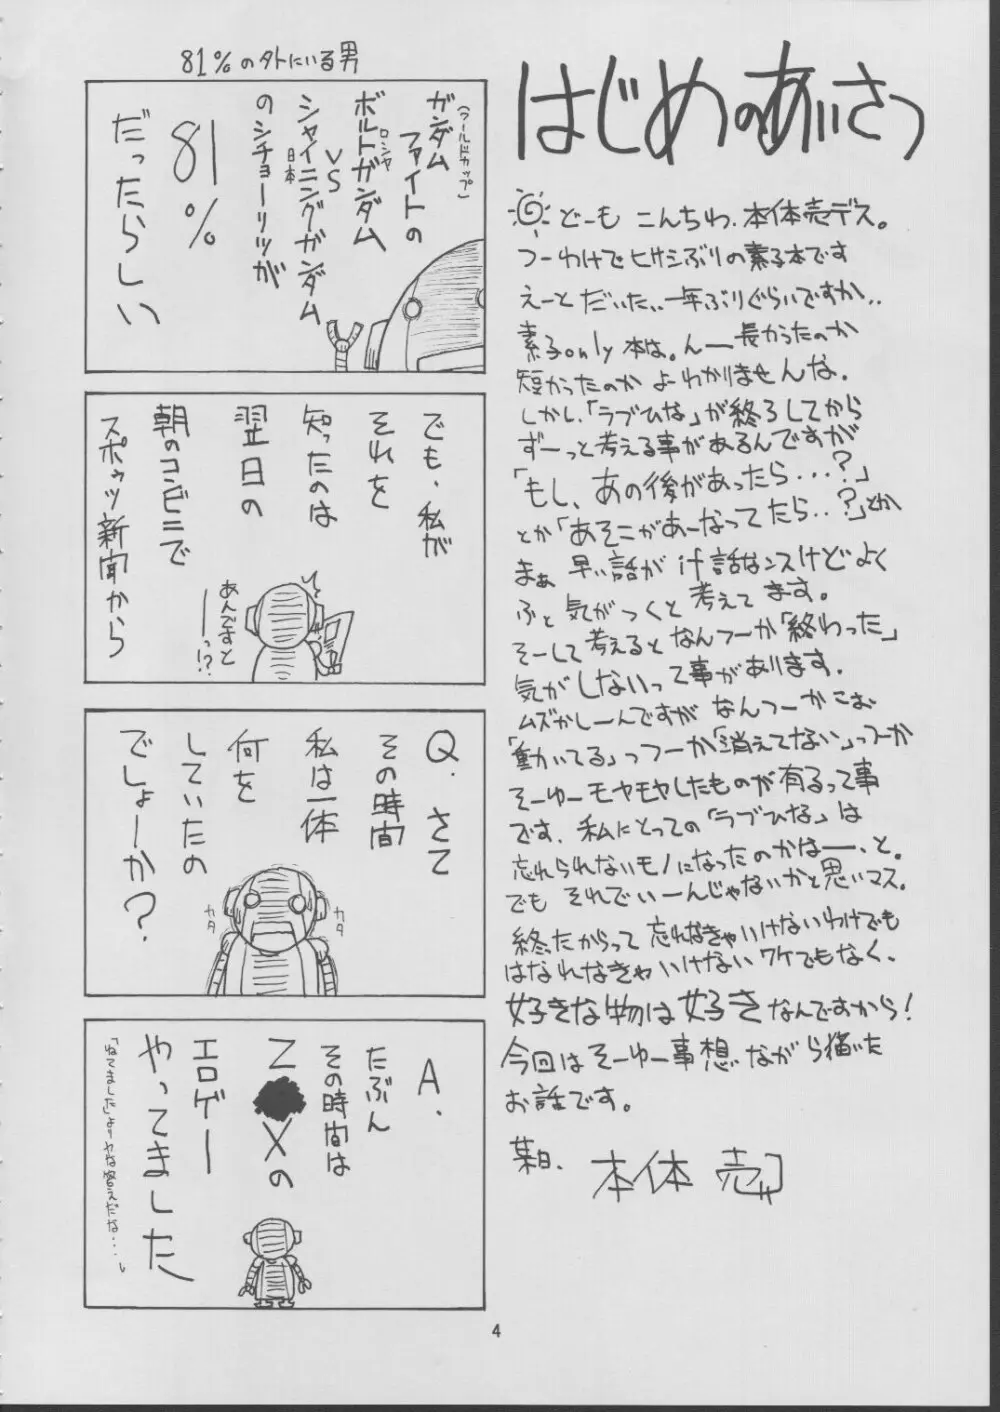 はじめのあいさつ
どーも こんちわ、本体売デス。
つーわけでヒサシぶりの素子本です
えーと だいたい、一年ぶりぐらいですか、、
素子only本は。んー長かったのか
短かったのか よーわかりませんな。
しかし、「ラブひな」が終了してから
ずーっと考える事があるんですが
「もし、あの後があったら・・・?」
とか「あそこがあーなってたら・・?」とか
まぁ 早い話がif話なンスけどよく
ふと気がつくと考えてます。
そーして考えるとなんつーか「終わった」
気がしないって事があります。
ムズかしーんですが なんつーかこお
「動いてる」っつーか「消えてない」っつーか
そーゆーモヤモヤしたものが有るって事
です。私にとっての「ラブひな」は
忘れられないモノになったのかはー、と。
でも それでいーんじゃないかと思いマス。
終ったからって 忘れなきゃいけないわけでも
はなれなきゃいけないワケでもなく、
好きな物は好きなんですから!
今回はそーゆー事想いながら描いた
お話です。
某日、 本体 売
81%のソトにいる男
(ワールドカップ)
ガンダム
ファイトの
ロシヤ
ボルトガンダム
VS
シャイニングガンダム
日本
のシチョーリツが
81%
だったらしい
でも、私が
それを
知ったのは
翌日の
朝のコンビニで
スポゥツ新聞から
あんですと
ーっ!?
Q.さて
その時間
私は一体
何を
していたの
でしょーか?
カタ
カタ
A.
たぶん
その時間は
Z●Xの
エロゲー
やってました
「ねてました」よりヤな答えだな・・・。
4